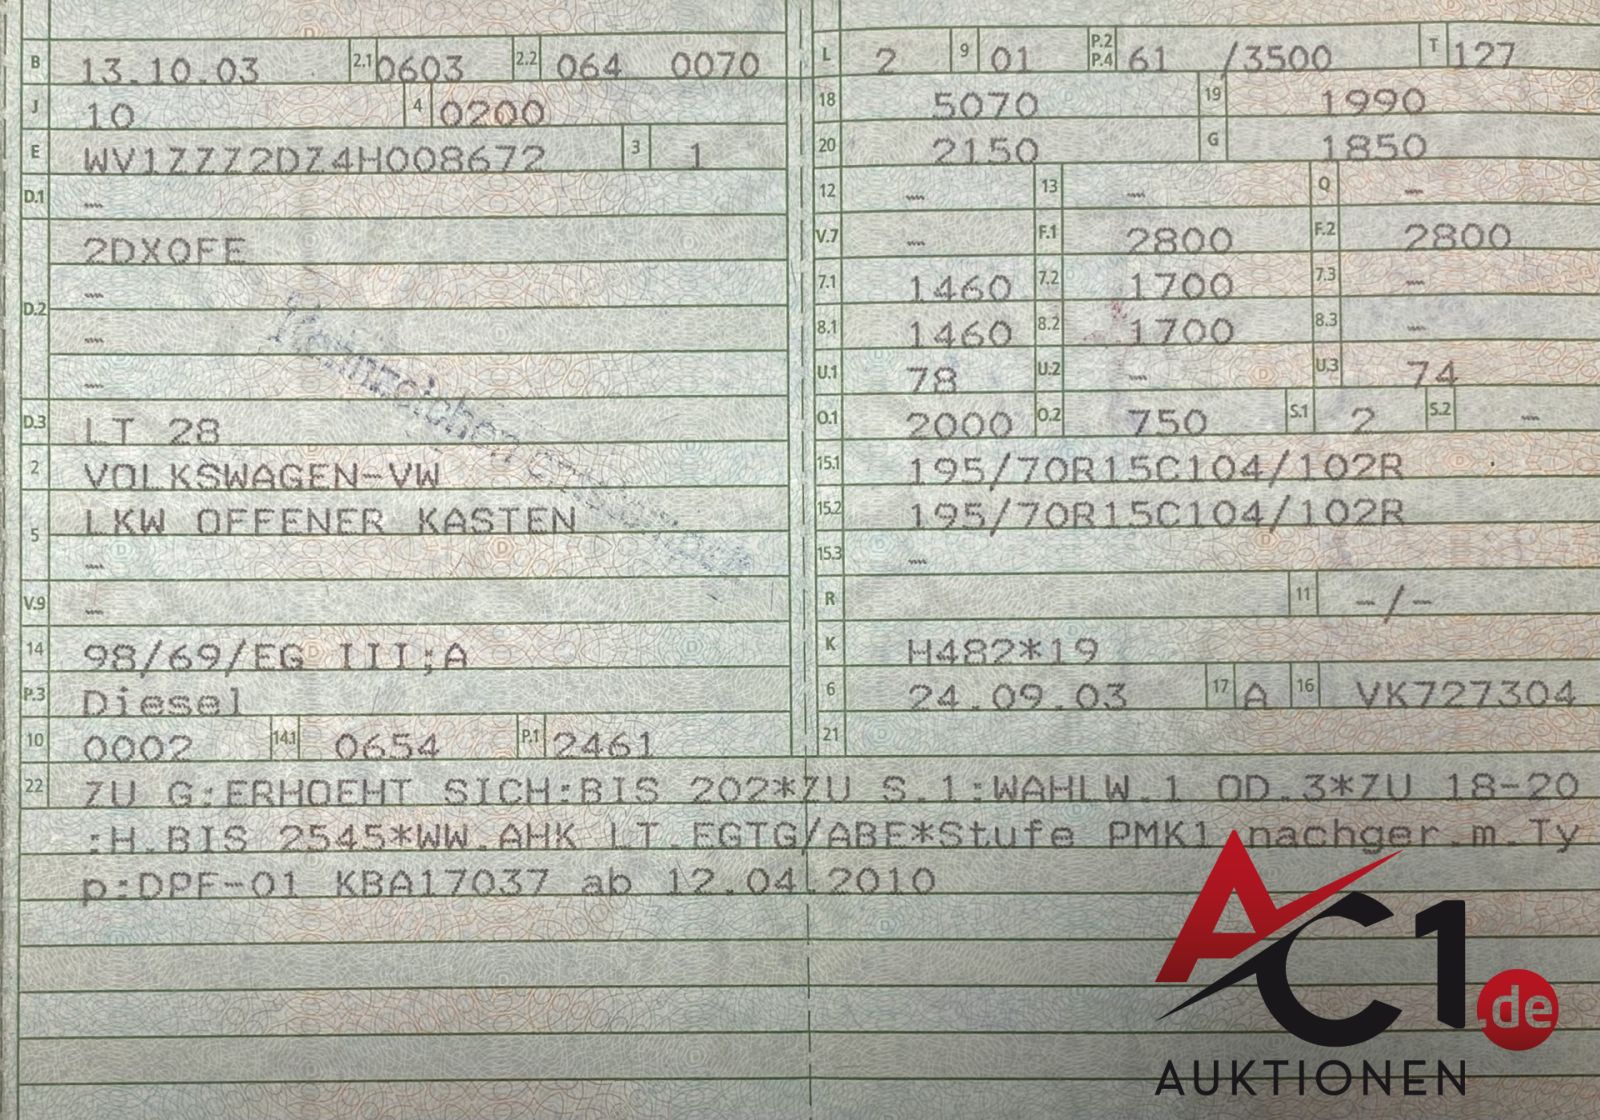 B 13.10.03 2.1 0603 2.2 064 0070
J 10 4 0200
E WV1ZZZ2DZ4H008672 3 1
D.1 —
D.2 2DX0FE
—
—
—
D.3 LT 28
2 VOLKSWAGEN-VW
5 LKW OFFENER KASTEN
—
V.9 —
14 98/69/EG III;A
P.3 Diesel
10 0002 14.1 0654 P.1 2461
L 2 9 01 P.2 P.4 61 /3500 T 127
18 5070 19 1990
20 2150 G 1850
12 — 13 — Q —
V.7 — F.1 2800 F.2 2800
7.1 1460 7.2 1700 7.3 —
8.1 1460 8.2 1700 8.3 —
U.1 78 U.2 — U.3 74
O.1 2000 O.2 750 S.1 2 S.2 —
15.1 195/70R15C104/102R
15.2 195/70R15C104/102R
15.3 —
R 11 -/-
K H482*19
6 24.09.03 17 A 16 VK727304
21
22 ZU G:ERHOEHT SICH:BIS 202*ZU S.1:WAHLW.1 OD.3*ZU 18-20
:H.BIS 2545*WW.AHK LT.EGTG/ABE*Stufe PMK1 nachger.m.Ty
p:DPF-01 KBA17037 ab 12.04.2010
Kennzeichen entstempelt
AC1.de
AUKTIONEN